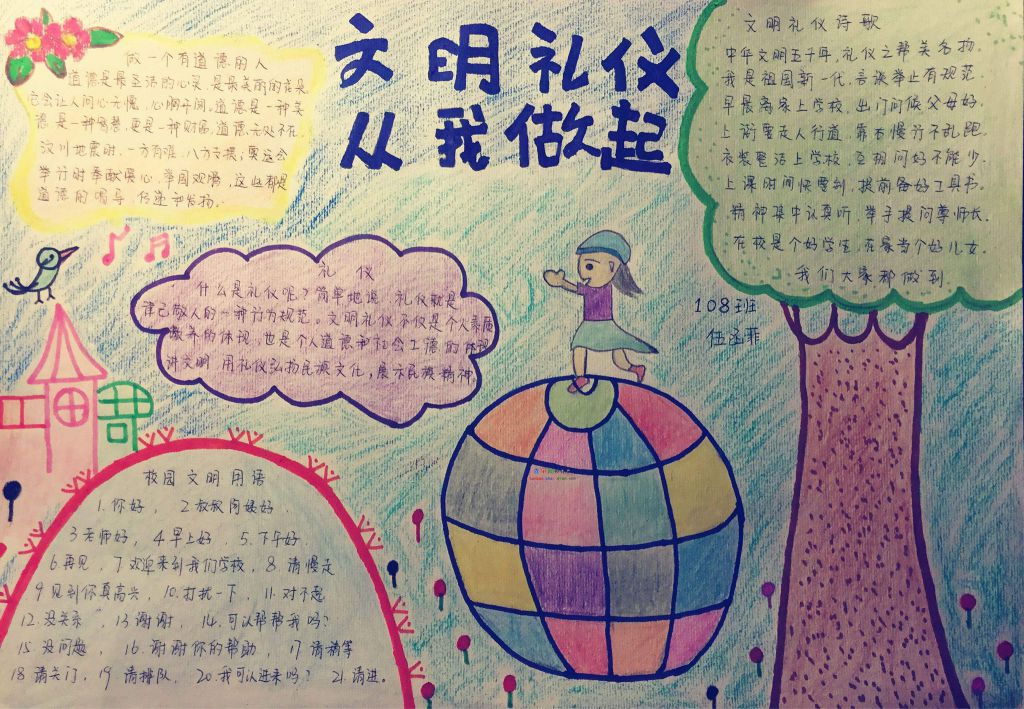 文明礼仪
从我做起
做一个有道德的人
道德是最圣洁的心灵,是最美丽的花朵,
它会让人问心无愧,心胸开阔。道德是一种美
德,是一种智慧,更是一种财富。道德无处不在。
汶川地震时,一方有难,八方支援;奥运会
举行时奉献爱心,举国欢腾,这些都是
道德的
传递和发扬。
礼仪
什么是礼仪呢?简单地说,礼仪就是
律己敬人的一种行为规范。文明礼仪不仅是个人素质
教养的体现,也是个人道德和社会公德的体现
讲文明 用礼仪弘扬民族文化,展示民族精神。
文明礼仪诗歌
中华文明五千年,礼仪之邦美名扬.
我是祖国新一代,言谈举止有规范.
早晨离家上学校,出门问候父母好.
上街要走人行道,靠右慢行不乱跑.
衣装整洁上学校,互相问好不能少.
上课时间快要到,提前备好工具书.
精神集中认真听,举手提问尊师长.
在校是个好学生,在家当个好儿女.
我们大家都做到.
108班
伍函菲
校园文明用语
1.你好, 2.叔叔阿姨好.
3.老师好, 4.早上好, 5.下午好.
6.再见, 7.欢迎来到我们学校, 8.请慢走
9.见到你真高兴, 10.打扰一下, 11.对不起
12.没关系, 13.谢谢, 14.可以帮帮我吗?
15.没问题, 16.谢谢你的帮助, 17.请稍等
18.请关门, 19.请排队, 20.我可以进来吗? 21.请进。